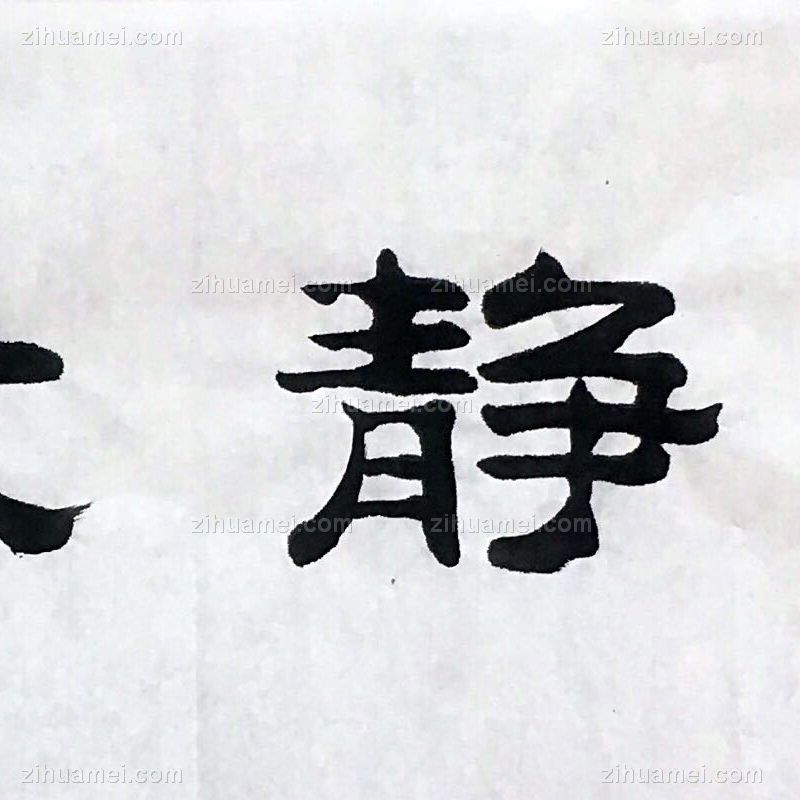 静
zihuamei.com zihuamei.com
zihuamei.com zihuamei.com
zihuamei.com
zihuamei.com zihuamei.com
zihuamei.com zihuamei.com